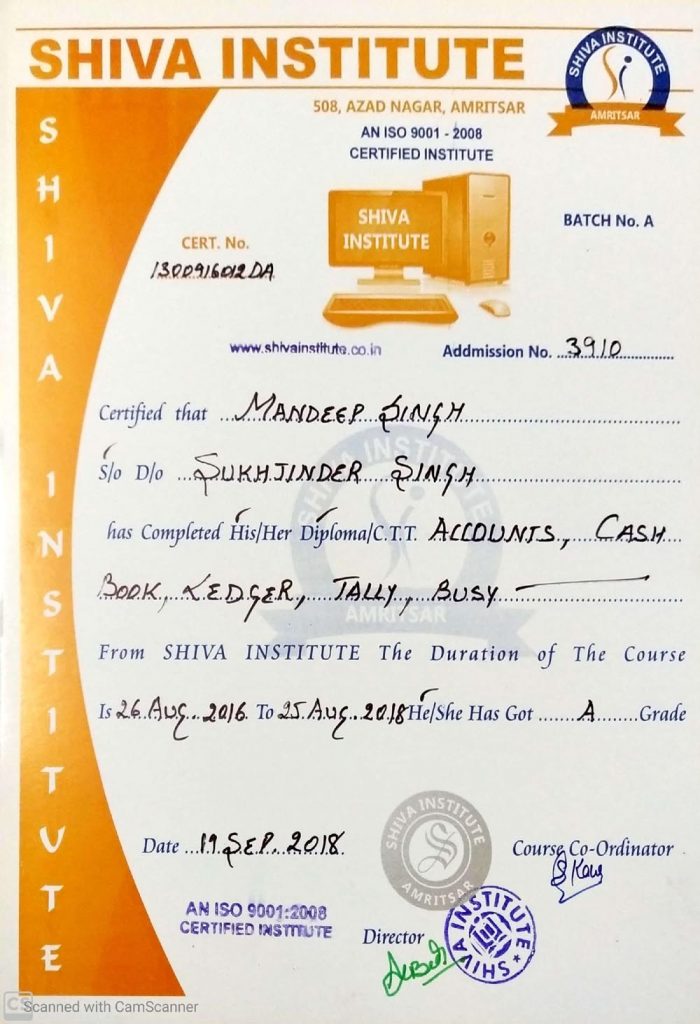 SHIVA INSTITUTE
SHIVA INSTITUTE
AMRITSAR
508, AZAD NAGAR, AMRITSAR
AN ISO 9001 - 2008
CERTIFIED INSTITUTE
SHIVA INSTITUTE
SHIVA
INSTITUTE
BATCH No. A
CERT. No.
1300916012DA
www.shivainstitute.co.in
Addmission No. 3910
Certified that Mandeep Singh
S/o D/o Sukhjinder Singh
has Completed His/Her Diploma/C.T.T. Accounts, Cash
Book, Ledger, Tally, Busy
SHIVA INSTITUTE
AMRITSAR
From SHIVA INSTITUTE The Duration of The Course
Is 26 Aug. 2016 To 25 Aug. 2018 He/She Has Got A Grade
SHIVA INSTITUTE
AMRITSAR
Date 19 Sep. 2018
Course Co-Ordinator
AN ISO 9001:2008
CERTIFIED INSTITUTE
Director
SHIVA INSTITUTE
CS Scanned with CamScanner